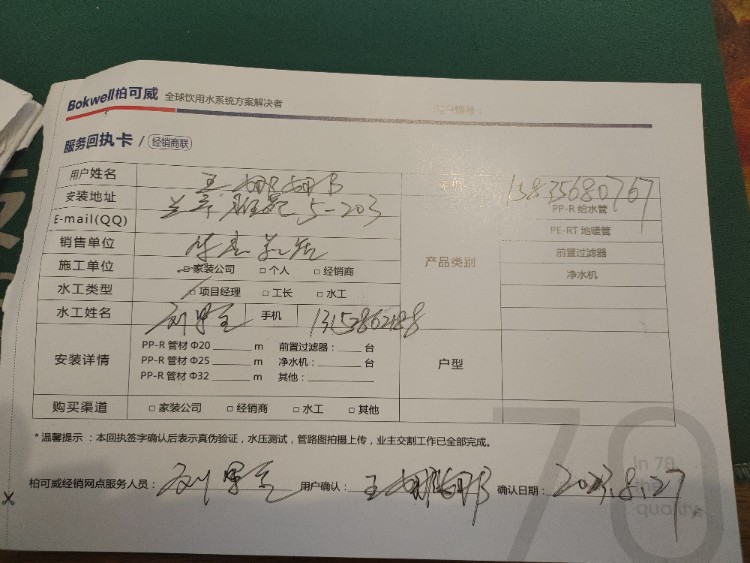 Bokwell柏可威 全球饮用水系统方案解决者
服务回执卡 / 经销商联
用户姓名 王 13835680767
安装地址 5-203 PP-R 给水管
E-mail(QQ) PE-RT 地暖管
销售单位 产品类别 前置过滤器
施工单位 □家装公司 □ 个人 □ 经销商 净水机
水工类型 □项目经理 □ 工长 □ 水工
水工姓名 刘 手机
安装详情 PP-R 管材 Φ20 m 前置过滤器: 台 户型
PP-R 管材 Φ25 m 净水机: 台
PP-R 管材 Φ32 m 其他:
购买渠道 □ 家装公司 □ 经销商 □ 水工 □ 其他
*温馨提示:本回执签字确认后表示真伪验证,水压测试,管路图拍摄上传,业主交割工作已全部完成。
柏可威经销网点服务人员: 刘 用户确认: 王 确认日期: 2023.8.27
70
In 70
the
quality